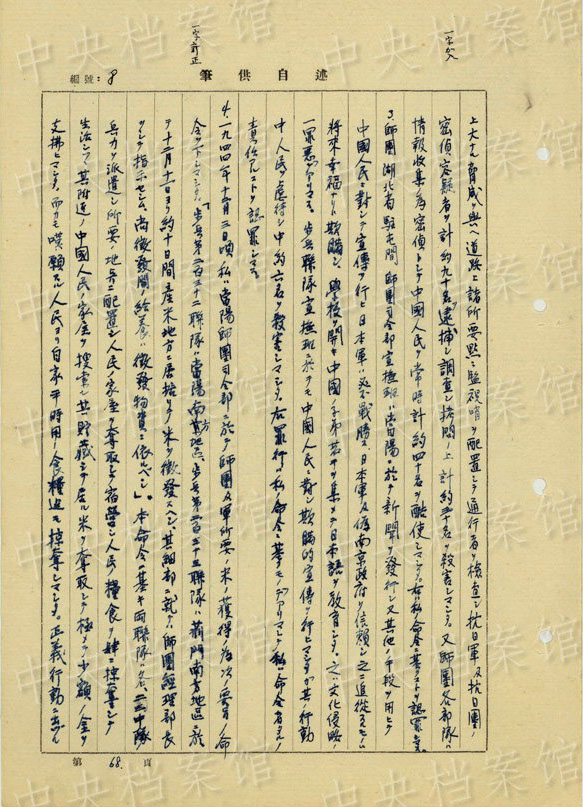 一字加入
一字訂正
述自供筆
編號：8
上大ナル脅威ヲ與ヘ道路上諸所要點ニ監視哨ヲ配置シテ通行者ヲ檢查シ抗日軍及抗日團ノ
密偵容疑者ヲ計約九十名逮捕シ調査シ拷問ノ上計約三十名ヲ殺害シマシタ。又師團各部隊ハ
情報收集ノ為密偵トシテ中國人民ヲ常時計約四十名ヲ酷使シマシタ。右ハ私ノ命令ニ基クコトヲ認罪シマス。
3.師團ノ湖北省駐屯間師團司令部宣撫班ハ當陽ニ於テ新聞ヲ發行シ又其他ノ手段ヲ用ヒテ
中國人民ニ對シテ宣傳ヲ行ヒ日本軍ハ必ズ戰勝ス、日本軍及偽南京政府ヲ信賴シ之ニ追從スルモノハ
將來幸福ナリト欺瞞シ、學校ヲ開キ中國ノ子弟若干ヲ集メテ日本語ヲ教育シマシタ。之ハ文化侵略ノ
一罪惡デアリマス。步兵聯隊宣撫班亦モ中國人民ニ對シ欺瞞的宣傳ヲ行ヒマシタガ其ノ行動
中人民ヲ虐待シ中約六名ヲ殺害シマシタ。右罪行ハ私ノ命令ニ基クモノデアリマシテ私ハ命令者トシテ
責任アルコトヲ認罪シマス。
4.一九四四年十二月三日頃私ハ當陽師團司令部ニ於テ師團及軍所要ノ米ノ獲得ノ為次ノ要旨ノ命
令ヲ下シマシタ。「步兵第二百三十二聯隊ハ當陽南方地區、步兵第二百三十三聯隊ハ荊門南方地區ニ於
テ十二月十一日ヨリ約十日間產米地方ニ居据リテ米ヲ徵發スベシ、其細部ニ就テハ師團經理部長
ヲシテ指示セシム。尚徵發間給養ハ徵發物資ニ依ルベシ」。本命令ニ基キ両聯隊ハ各二、三中隊
兵力ヲ派遣シ所要ノ地點ニ配置シ人民ノ家屋ヲ奪取シテ宿營シ人民ノ糧食ヲ肆ニ掠奪シテ
生活シツツ其附近ノ中國人民ノ家屋ヲ搜索シ其貯藏シテ居ル米ヲ奪取シテ極メテ少額ノ金ヲ
支拂ヒマシタ。而カモ嘆願スル人民ヨリ自家平時用ノ食糧迄モ掠奪シマシタ。正義行動ニ出デル
第68.頁